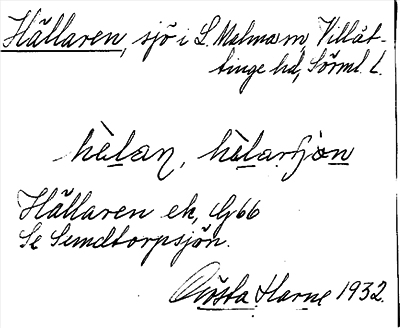 Hällaren, sjö i L. Malma sn, Villåt-
tinge hd, Sörml. l.
hèlan, hèlarsjön
Hällaren ek, G66
Se Sundtorpsjön.
Gösta Harne 1932.